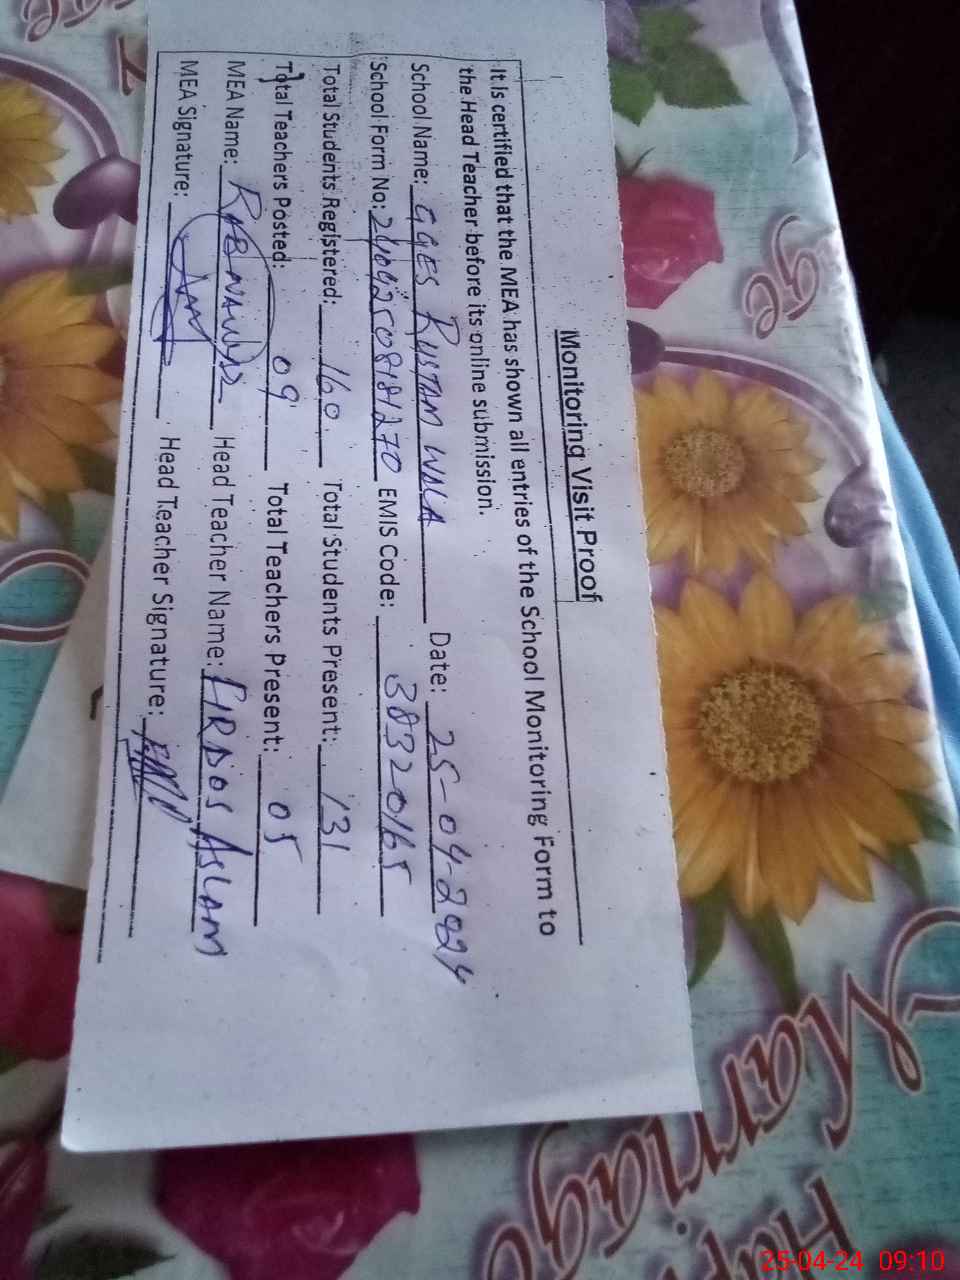 Monitoring Visit Proof
It is certified that the MEA has shown all entries of the School Monitoring Form to
the Head Teacher before its online submission.
School Name: GGES RUSTAM WALA Date: 25-04-2024
School Form No: EMIS Code: 38320165
Total Students Registered: 160 Total Students Present: 131
Total Teachers Posted: 09 Total Teachers Present: 05
MEA Name: RAB NAWAZ Head Teacher Name: FIRDOS ASLAM
MEA Signature: Head Teacher Signature:
Marriage
25-04-24 09:10